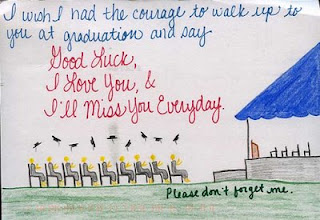 I wish I had the courage to walk up to
you at graduation and say
Good Luck,
I Love You, &
I'll Miss You Everyday.
Please don't forget me.